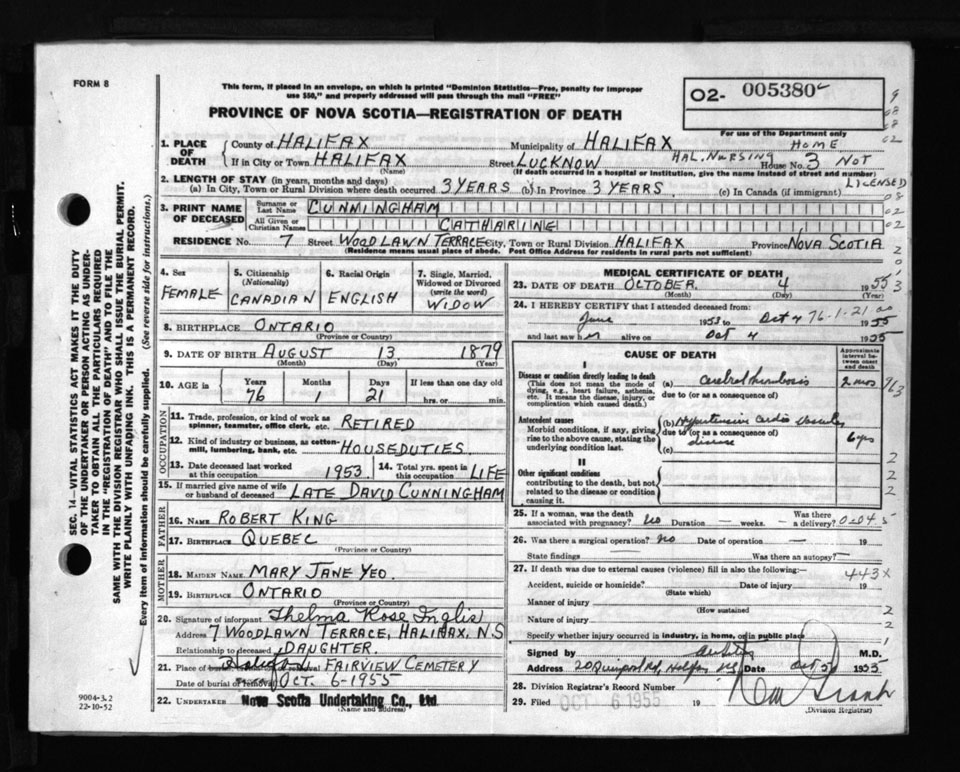 FORM 8
This form, if placed in an envelope, on which is printed "Dominion Statistics—Free, penalty for improper
use $50," and properly addressed will pass through the mail "FREE"
PROVINCE OF NOVA SCOTIA—REGISTRATION OF DEATH
O2- 005380
For use of the Department only
1. PLACE OF DEATH
County of HALIFAX Municipality of HALIFAX HOME
If in City or Town HALIFAX Street LUCKNOW HAL. NURSING House No. 3 NOT
(Name) (If death occurred in a hospital or institution, give the name instead of street and number)
LICENSED
2. LENGTH OF STAY (in years, months and days)
(a) In City, Town or Rural Division where death occurred 3 YEARS (b) In Province 3 YEARS (c) In Canada (if immigrant)
3. PRINT NAME OF DECEASED
Surname or Last Name CUNNINGHAM
All Given or Christian Names CATHARINE
RESIDENCE No. 7 Street WOODLAWN TERRACE City, Town or Rural Division HALIFAX Province NOVA SCOTIA
(Residence means usual place of abode. Post Office Address for residents in rural parts not sufficient)
4. Sex
FEMALE
5. Citizenship
(Nationality)
CANADIAN
6. Racial Origin
ENGLISH
7. Single, Married,
Widowed or Divorced
(write the word)
WIDOW
8. BIRTHPLACE ONTARIO
(Province or Country)
9. DATE OF BIRTH AUGUST 13 1879
(Month) (Day) (Year)
10. AGE in
Years Months Days If less than one day old
76 1 21 hrs. or min.
OCCUPATION
11. Trade, profession, or kind of work as
spinner, teamster, office clerk, etc. RETIRED
12. Kind of industry or business, as cotton-
mill, lumbering, bank, etc. HOUSEDUTIES.
13. Date deceased last worked
at this occupation 1953.
14. Total yrs. spent in
this occupation LIFE
15. If married give name of wife
or husband of deceased LATE DAVID CUNNINGHAM
FATHER
16. NAME ROBERT KING
17. BIRTHPLACE QUEBEC
(Province or Country)
MOTHER
18. MAIDEN NAME MARY JANE YEO.
19. BIRTHPLACE ONTARIO
(Province or Country)
20. Signature of informant Thelma Rose Inglis
Address 7 WOODLAWN TERRACE, HALIFAX, N.S
Relationship to deceased DAUGHTER.
21. Place of burial, Halifax FAIRVIEW CEMETERY
Date of burial or removal OCT. 6-1955
22. UNDERTAKER Nova Scotia Undertaking Co., Ltd.
(Name and address)
MEDICAL CERTIFICATE OF DEATH
23. DATE OF DEATH OCTOBER 4 1955
(Month) (Day) (Year)
24. I HEREBY CERTIFY that I attended deceased from:
June 1953 to Oct 4 76-1-21 1955
and last saw h alive on Oct 4 1955
CAUSE OF DEATH
Approximate
interval between
onset
and death
I
Disease or condition directly leading to death
(This does not mean the mode of
dying, e.g., heart failure, asthenia,
etc. It means the disease, injury, or
complication which caused death.)
(a) Cerebral thrombosis 2 mos
due to (or as a consequence of)
Antecedent causes
Morbid conditions, if any, giving
rise to the above cause, stating the
underlying condition last.
(b) Hypertensive cardio vascular
due to (or as a consequence of)
disease 6 yrs
(c)
II
Other significant conditions
contributing to the death, but not
related to the disease or condition
causing it.
25. If a woman, was the death
associated with pregnancy? No Duration — weeks. — Was there
a delivery?
26. Was there a surgical operation? No Date of operation — 19
State findings — Was there an autopsy? —
27. If death was due to external causes (violence) fill in also the following:— 443x
Accident, suicide or homicide? Date of injury 19
(State which)
Manner of injury
(How sustained
Nature of injury
Specify whether injury occurred in industry, in home, or in public place
Signed by M.D.
Address 20 Quinpool Rd, Halifax NS Date Oct 5 1955
28. Division Registrar's Record Number
29. Filed OCT 6 1955 19
(Division Registrar)
SEC. 14—VITAL STATISTICS ACT MAKES IT THE DUTY
OF THE UNDERTAKER OR PERSON ACTING AS UNDER-
TAKER TO OBTAIN ALL THE PARTICULARS REQUIRED
IN THE "REGISTRATION OF DEATH" AND TO FILE THE
SAME WITH THE DIVISION REGISTRAR WHO SHALL ISSUE THE BURIAL PERMIT.
WRITE PLAINLY WITH UNFADING INK. THIS IS A PERMANENT RECORD.
Every item of information should be carefully supplied. (See reverse side for instructions.)
9004-3.2
22-10-52